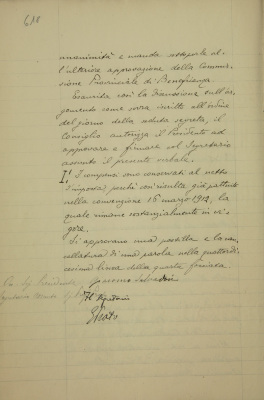 618
unanimità e manda sottoporla al-
l'ulteriore approvazione della Commis-
sione Provinciale di Beneficenza.
Esaurita così la trattazione sull'ar-
gomento come sovra iscritto all'ordine
del giorno della seduta segreta, il
Consiglio autorizza il Presidente ad
approvare e firmare col Segretario
assunto il presente verbale.
sono conservati al netto
d'imposta perchè così risulta già pattuito
nella convenzione 16 marzo 1912, la
quale rimane sostanzialmente in vi-
gore.
Si approvano una postilla e la can-
cellatura di una parola nella quattordi-
cesima linea della quarta facciata.
Il Segretario